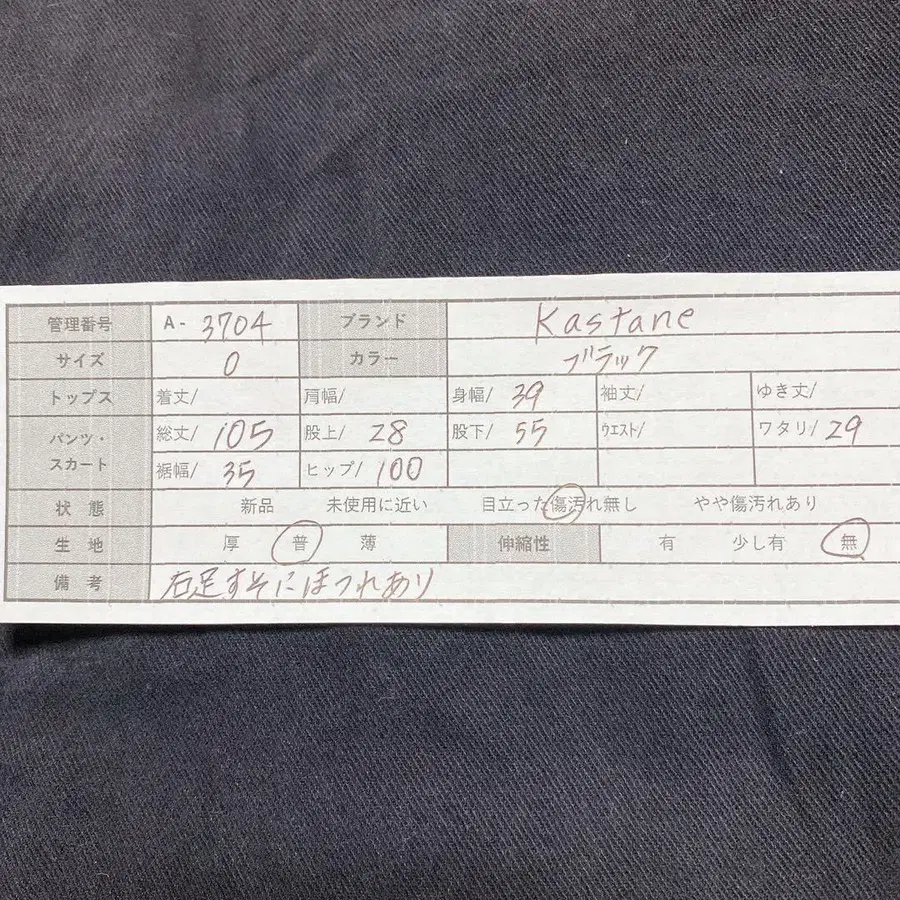 管理番号 A- 3704 ブランド Kastane
サイズ 0 カラー ブラック
トップス 着丈/ 肩幅/ 身幅/ 39 袖丈/ ゆき丈/
パンツ・スカート 総丈/ 105 股上/ 28 股下/ 55 ウエスト/ ワタリ/ 29
裾幅/ 35 ヒップ/ 100
状態 新品 未使用に近い 目立った傷汚れ無し やや傷汚れあり
生地 厚 普 薄 伸縮性 有 少し有 無
備考 右足すそにほつれあり